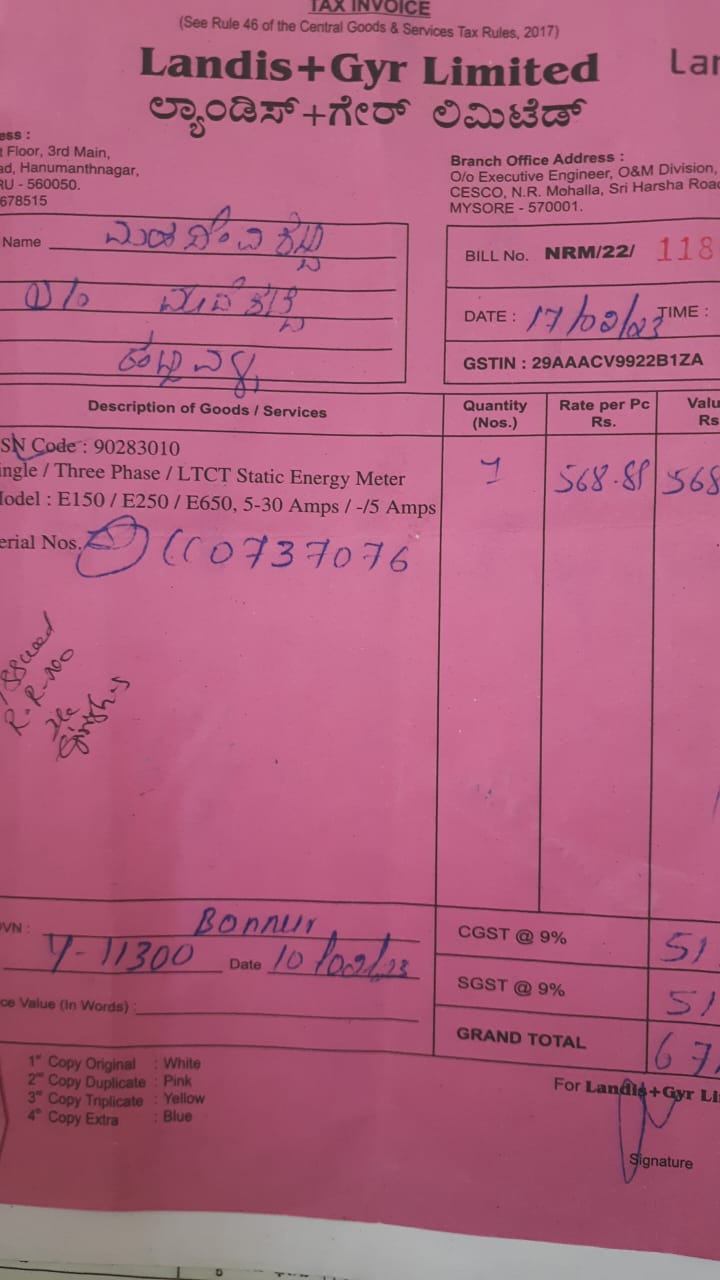 TAX INVOICE
(See Rule 46 of the Central Goods & Services Tax Rules, 2017)
Landis+Gyr Limited Lan
ಲ್ಯಾಂಡಿಸ್+ಗೇರ್ ಲಿಮಿಟೆಡ್
ess :
t Floor, 3rd Main,
ad, Hanumanthnagar,
RU - 560050.
678515
Branch Office Address :
O/o Executive Engineer, O&M Division,
CESCO, N.R. Mohalla, Sri Harsha Road
MYSORE - 570001.
Name
BILL No. NRM/22/ 118
DATE : 17/02/23 TIME :
GSTIN : 29AAACV9922B1ZA
Description of Goods / Services Quantity (Nos.) Rate per Pc Rs. Valu Rs
SN Code : 90283010
ingle / Three Phase / LTCT Static Energy Meter 1 568.81 568
Model : E150 / E250 / E650, 5-30 Amps / -/5 Amps
erial Nos. 0737076
Issued
R.R. no
Bannur
OVN :
Y-11300 Date 10/02/23
CGST @ 9% 51
SGST @ 9% 51
ce Value (In Words) :
GRAND TOTAL 67
1st Copy Original : White
2nd Copy Duplicate : Pink
3rd Copy Triplicate : Yellow
4th Copy Extra : Blue
For Landis+Gyr Li
Signature